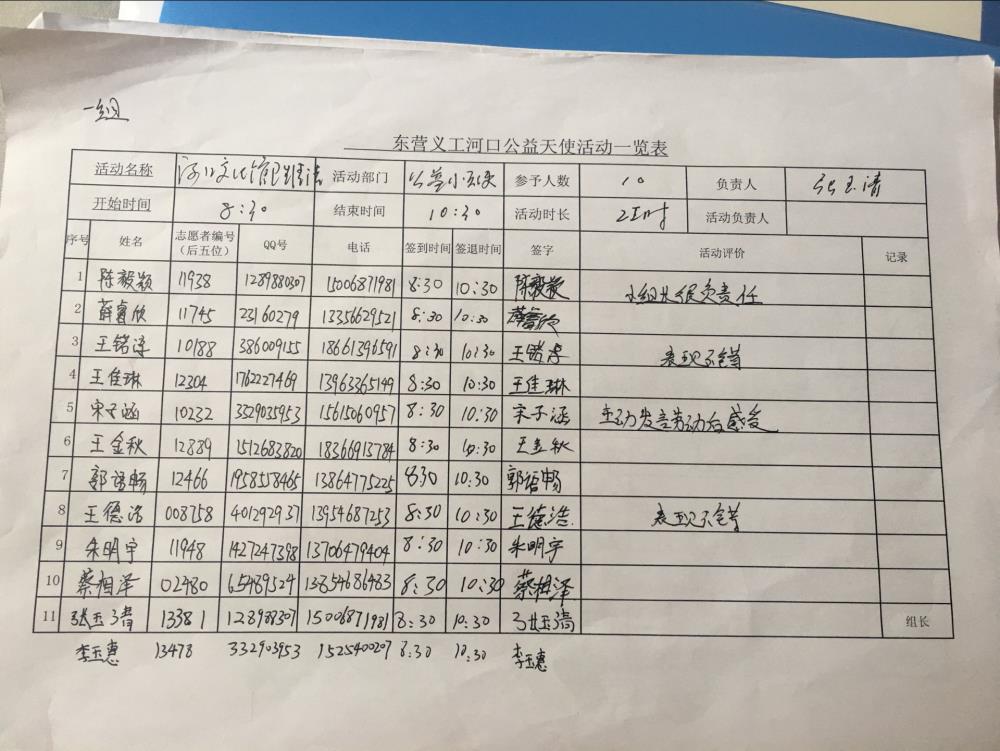 一组
东营义工河口公益天使活动一览表
活动名称 河口文化馆 活动部门 公益小天使 参予人数 10 负责人 张玉清
开始时间 8:30 结束时间 10:30 活动时长 2工时 活动负责人
序号 姓名 志愿者编号（后五位） QQ号 电话 签到时间 签退时间 签字 活动评价 记录
1 陈毅颖 11938 1289880307 15006871981 8:30 10:30 陈毅颖 小组长很负责任
2 薛睿欣 11745 23160279 13356629521 8:30 10:30 薛睿欣
3 王锘淳 10188 386009155 18661396591 8:30 10:30 王锘淳 表现不错
4 王佳琳 12304 1762227469 13963365199 8:30 10:30 王佳琳
5 宋子涵 10232 3329035953 15615060957 8:30 10:30 宋子涵 主动发言劳动后感受
6 王金秋 12889 1512683820 18366913784 8:30 10:30 王金秋
7 郭语畅 12466 1958558465 13864775225 8:30 10:30 郭语畅
8 王德浩 008758 401292937 13954687253 8:30 10:30 王德浩 表现不错
9 朱明宇 11948 1427247398 13706479404 8:30 10:30 朱明宇
10 蔡相泽 02480 65489524 13854686483 8:30 10:30 蔡相泽
11 张玉清 13381 128988307 15006871981 8:30 10:30 张玉清 组长
李玉惠 13478 332903953 1525400207 8:30 10:30 李玉惠